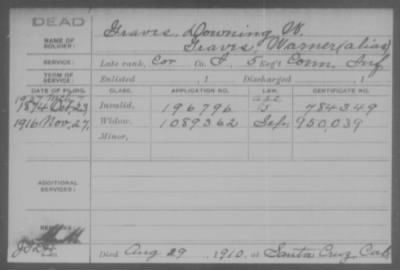 DEAD
NAME OF SOLDIER: Gravis, Downing W.
Gravis, Warner (alias)
SERVICE: Late rank, Cor Co. I, 5 Reg't Conn. Inf
TERM OF SERVICE: Enlisted , 1 Discharged , 1
DATE OF FILING. CLASS. APPLICATION NO. LAW. CERTIFICATE NO.
Oct. 23 Invalid, 196796 784349
1916 Nov. 27, Widow, 1089362 Sep. 950,039
Minor,
ADDITIONAL SERVICES:
REMARKS:
Died Aug 29, 1910, at Santa Cruz Cal.